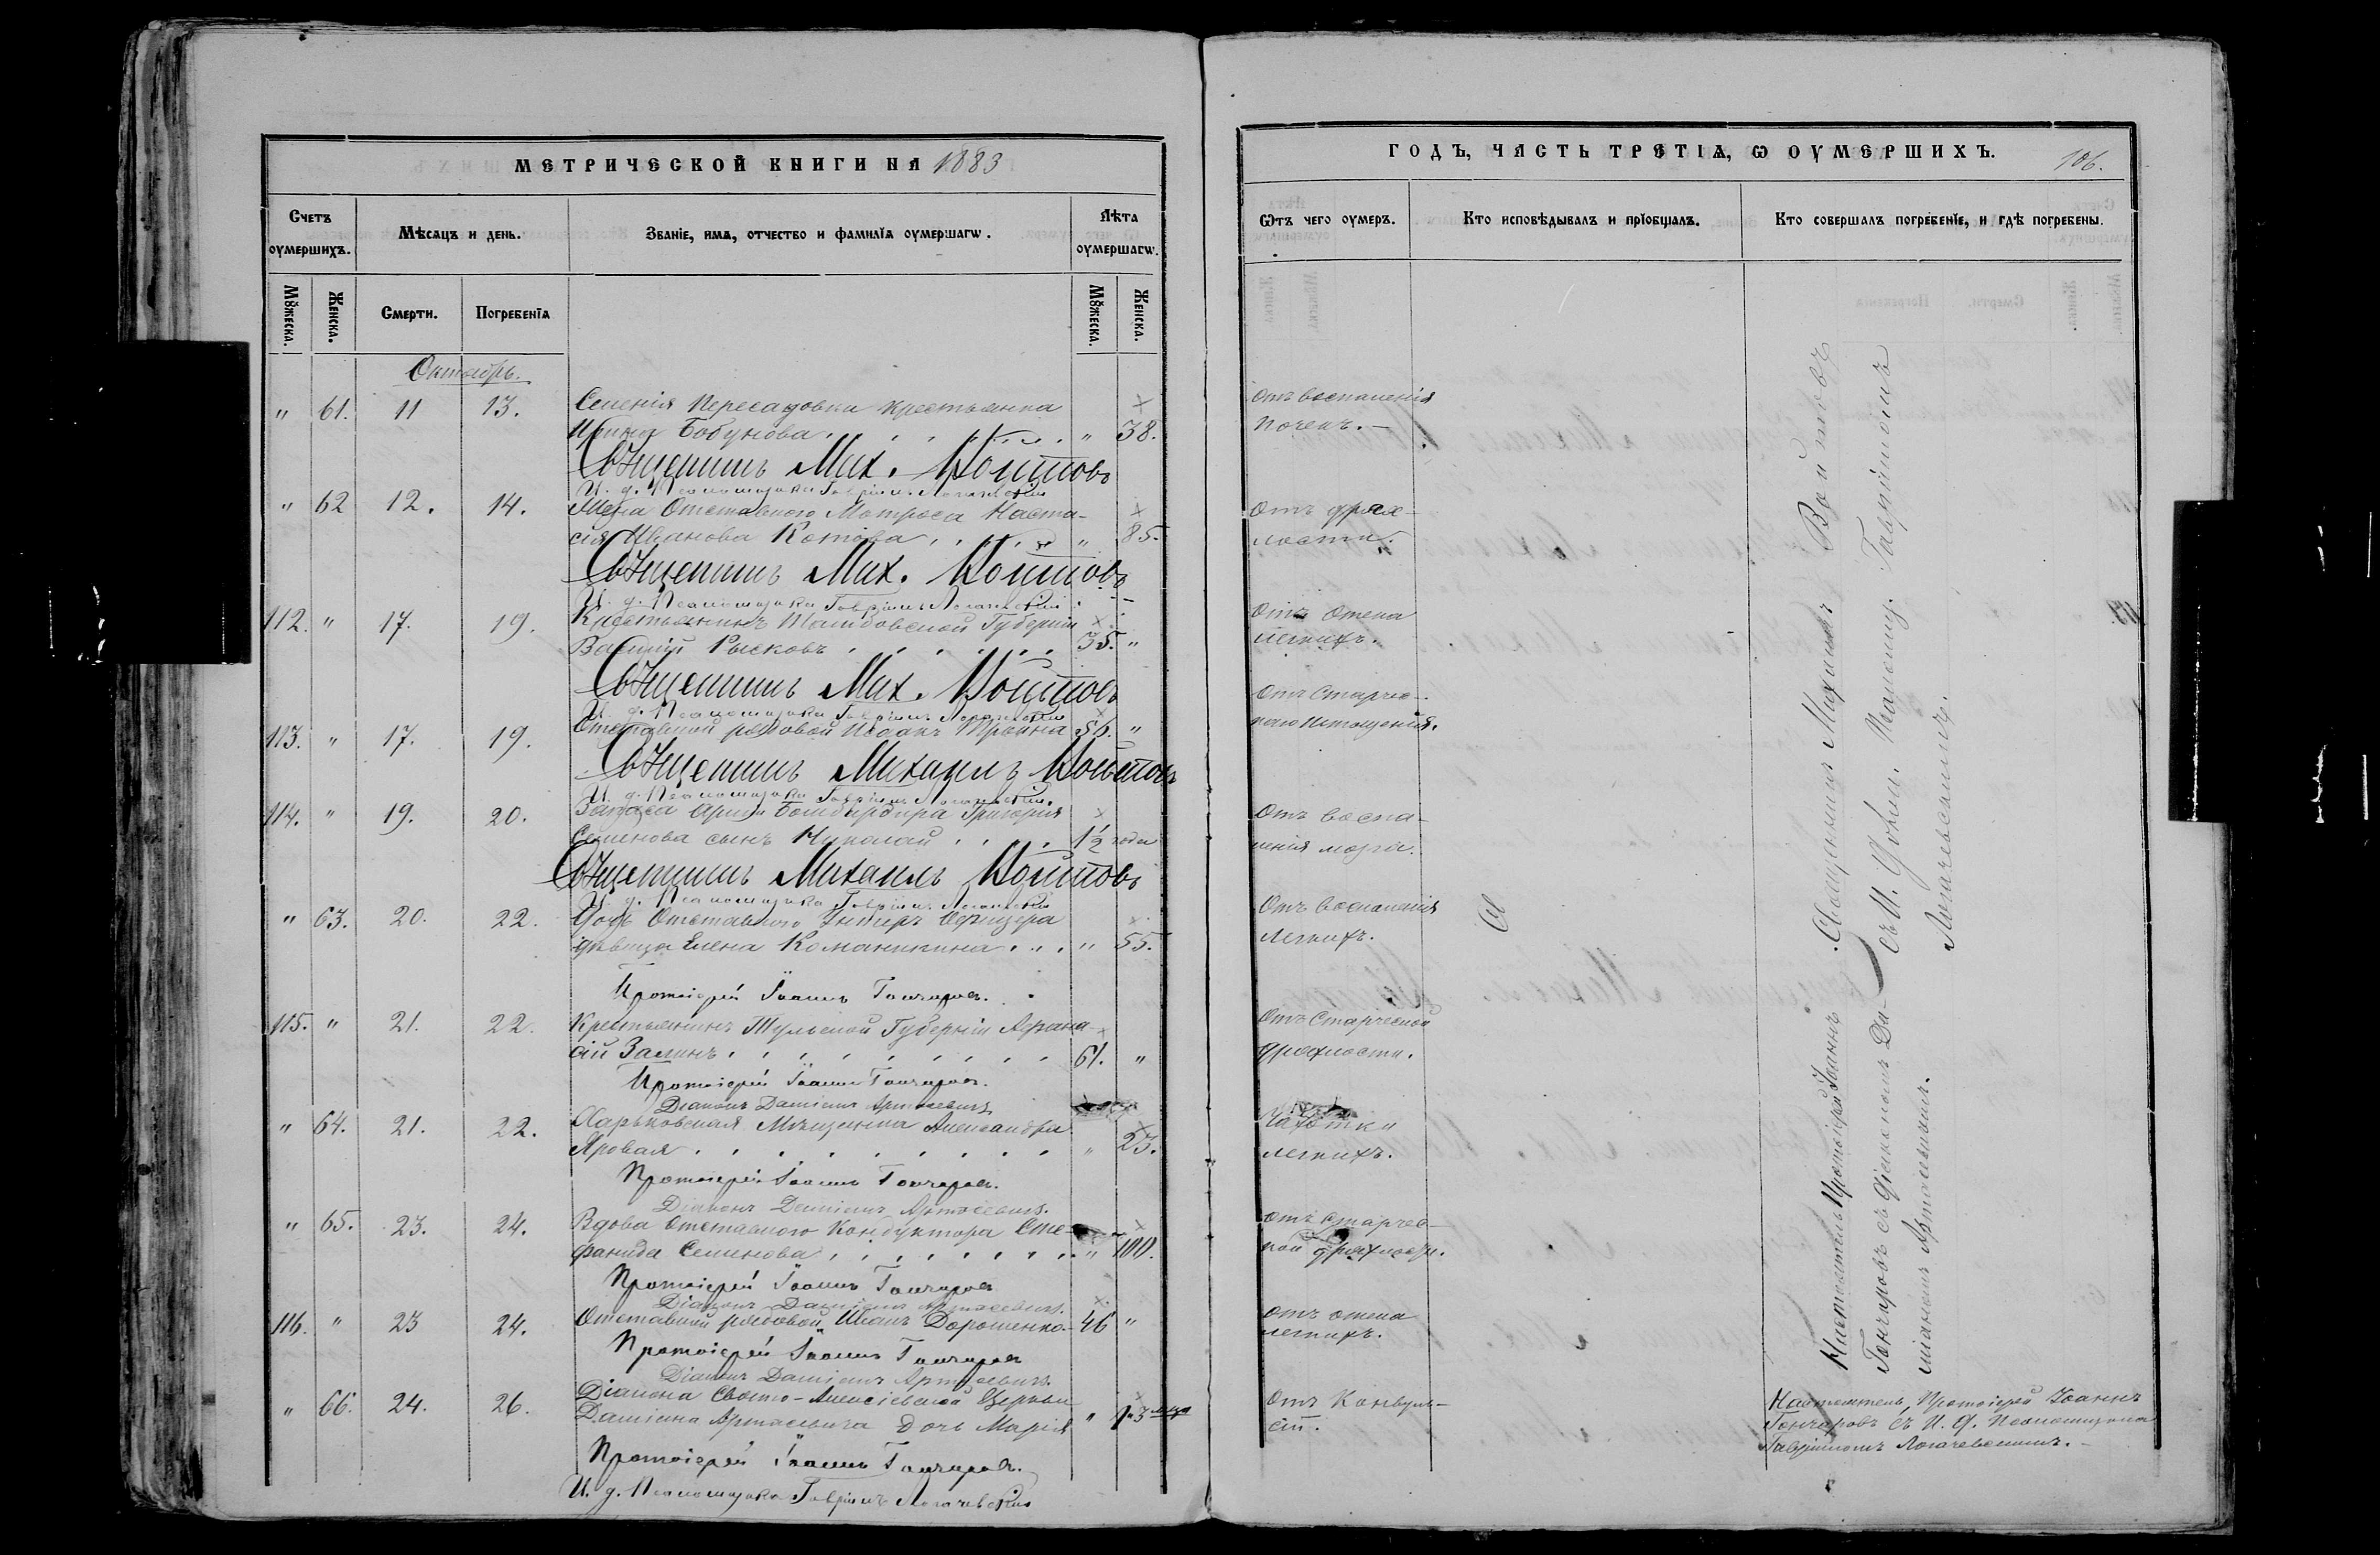 МЕТРИЧЕСКОЙ КНИГИ НА 1883
Счетъ оумершихъ.
Мѣсяцъ и день.
Званіе, имя, отчество и фамилія оумершагѡ.
Лѣта оумершагѡ.
Мꙋжеска.
Женска.
Смерти.
Погребенїа
Мꙋжеска.
Женска.
Октябрь.
" 61. 11 13. Селенія Пересадовки крестьянка
Ирина Бобунова " 38.
Священникъ Мих. Войтовъ
И. д. Псаломщика Гавріилъ Логачевскій
" 62 12. 14. Жена Отставного Матроса Наста-
сія Иванова Котова " 85.
Священникъ Мих. Войтовъ
И. д. Псаломщика Гавріилъ Логачевскій
112. " 17. 19. Крестьянинъ Тамбовской Губерніи
Василій Рысковъ 35. "
Священникъ Мих. Войтовъ
И. д. Псаломщика Гавріилъ Логачевскій
113. " 17. 19. Отставной рядовой Исаакъ 56. "
Священникъ Михаилъ Войтовъ
И. д. Псаломщика Гавріилъ Логачевскій
114. " 19. 20. Запаса Арміи Бомбардира Григорія
Семенова сынъ Николай 1½ года
Священникъ Михаилъ Войтовъ
И. д. Псаломщика Гавріилъ Логачевскій
" 63. 20. 22. Дочь Отставного Унтеръ Офицера
дѣвица Елена Команикина " 55.
Протоіерей Іоаннъ Гончаровъ.
115. " 21. 22. Крестьянинъ Тульской Губерніи Афана-
сій Залинъ 61. "
Протоіерей Іоаннъ Гончаровъ.
Діаконъ Даміанъ Артасевичъ
" 64. 21. 22. Харьковская Мѣщанка Александра
Яровая " 23.
Протоіерей Іоаннъ Гончаровъ.
Діаконъ Даміанъ Артасевичъ.
" 65. 23. 24. Вдова Отставного Кондуктора Сте-
фанида Семенова " 100.
Протоіерей Іоаннъ Гончаровъ
Діаконъ Даміанъ Артасевичъ.
116. " 23 24. Отставной рядовой Иванъ Дорошенко 46 "
Протоіерей Іоаннъ Гончаровъ
Діаконъ Даміанъ Артасевичъ.
" 66. 24. 26. Діакона Свято-Алексіевской Церкви
Даміана Артасевича дочь Марія "
Протоіерей Іоаннъ Гончаровъ.
И. д. Псаломщика Гавріилъ Логачевскій
ГОДЪ, ЧАСТЬ ТРЕТІѦ, Ѡ ОУМЕРШИХЪ. 106.
Ѿтъ чего оумеръ.
Кто исповѣдывалъ и прїобщалъ.
Кто совершалъ погребенїе, и гдѣ погребены.
Отъ воспаленія
почекъ.
Отъ дрях-
лости.
Отъ отека
легкихъ.
Отъ Старчес-
каго истощенія.
Отъ воспа-
ленія мозга.
Отъ воспаленія
легкихъ.
Отъ Старческой
дряхлости.
Чахотки
легкихъ.
Отъ Старчес-
кой дряхлости.
Отъ отека
легкихъ.
Отъ Конвуль-
сіи.
Священникъ Михаилъ Войтовъ
съ И. Долж. Псаломщ. Гавріиломъ
Логачевскимъ.
Настоятель Протоіерей Іоаннъ
Гончаровъ съ Діакономъ Да-
міаномъ Артасевичемъ.
Настоятель, Протоіерей Іоаннъ
Гончаровъ съ И. д. Псаломщика
Гавріиломъ Логачевскимъ.